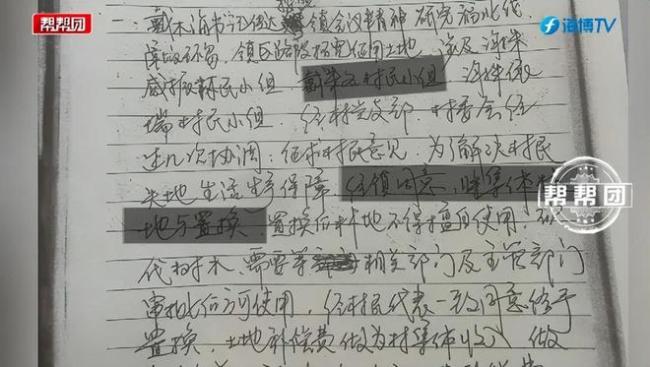 帮帮团
海博TV
一、戴木海书记传达镇会议精神 研究福北线
镇区路段扩宽征用土地，涉及海珠
村民小组，戴市五村民小组，海珠
瑞村民小组，经村党支部，村委会经
过几次协调，征求村民意见，为解决村民
失地生活生产保障，经镇同意，将集体
地与置换，置换后林地不得擅自使用，
伐树木，需要等相关部门及主管部门
审批后方可使用，经村民代表一致同意给予
置换，土地补偿费做为村集体收入，做
帮帮团